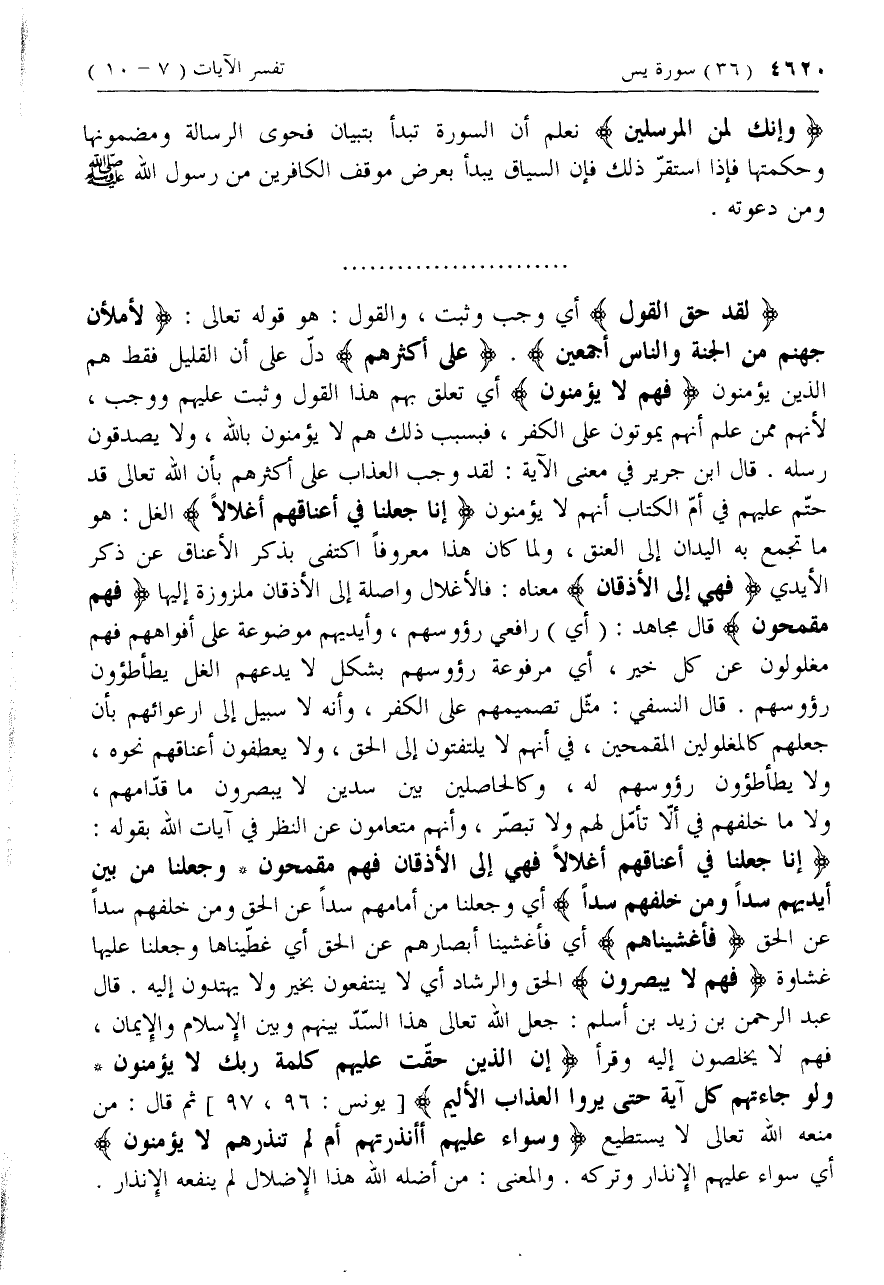 ٤٦٢٠ (٣٦) سورة يس تفسر الآيات ( ٧ – ١٠ )
﴿ وإنك لمن المرسلين ﴾ نعلم أن السورة تبدأ بتبيان فحوى الرسالة ومضمونها
وحكمتها فإذا استقرّ ذلك فإن السياق يبدأ بعرض موقف الكافرين من رسول الله ﷺ
ومن دعوته .
.........................
﴿ لقد حق القول ﴾ أي وجب وثبت ، والقول : هو قوله تعالى : ﴿ لأملأن
جهنم من الجنة والناس أجمعين ﴾ . ﴿ على أكثرهم ﴾ دلّ على أن القليل فقط هم
الذين يؤمنون ﴿ فهم لا يؤمنون ﴾ أي تعلق بهم هذا القول وثبت عليهم ووجب ،
لأنهم ممن علم أنهم يموتون على الكفر ، فبسبب ذلك هم لا يؤمنون بالله ، ولا يصدقون
رسله . قال ابن جرير في معنى الآية : لقد وجب العذاب على أكثرهم بأن الله تعالى قد
حتّم عليهم في أمّ الكتاب أنهم لا يؤمنون ﴿ إنا جعلنا في أعناقهم أغلالاً ﴾ الغل : هو
ما تجمع به اليدان إلى العنق ، ولما كان هذا معروفاً اكتفى بذكر الأعناق عن ذكر
الأيدي ﴿ فهي إلى الأذقان ﴾ معناه : فالأغلال واصلة إلى الأذقان ملزوزة إليها ﴿ فهم
مقمحون ﴾ قال مجاهد : ( أي ) رافعي رؤوسهم ، وأيديهم موضوعة على أفواههم فهم
مغلولون عن كل خير ، أي مرفوعة رؤوسهم بشكل لا يدعهم الغل يطأطؤون
رؤوسهم . قال النسفي : مثّل تصميمهم على الكفر ، وأنه لا سبيل إلى ارعوائهم بأن
جعلهم كالمغلولين المقمحين ، في أنهم لا يلتفتون إلى الحق ، ولا يعطفون أعناقهم نحوه ،
ولا يطأطؤون رؤوسهم له ، وكالحاصلين بين سدين لا يبصرون ما قدّامهم ،
ولا ما خلفهم في ألّا تأمّل لهم ولا تبصّر ، وأنهم متعامون عن النظر في آيات الله بقوله :
﴿ إنا جعلنا في أعناقهم أغلالاً فهي إلى الأذقان فهم مقمحون * وجعلنا من بين
أيديهم سداً ومن خلفهم سداً ﴾ أي وجعلنا من أمامهم سداً عن الحق ومن خلفهم سداً
عن الحق ﴿ فأغشيناهم ﴾ أي فأغشينا أبصارهم عن الحق أي غطّيناها وجعلنا عليها
غشاوة ﴿ فهم لا يبصرون ﴾ الحق والرشاد أي لا ينتفعون بخير ولا يهتدون إليه . قال
عبد الرحمن بن زيد بن أسلم : جعل الله تعالى هذا السّدّ بينهم وبين الإسلام والإيمان ،
فهم لا يخلصون إليه وقرأ ﴿ إن الذين حقّت عليهم كلمة ربك لا يؤمنون *
ولو جاءتهم كل آية حتى يروا العذاب الأليم ﴾ [ يونس : ٩٦ ، ٩٧ ] ثم قال : من
منعه الله تعالى لا يستطيع ﴿ وسواء عليهم أأنذرتهم أم لم تنذرهم لا يؤمنون ﴾
أي سواء عليهم الإنذار وتركه . والمعنى : من أضله الله هذا الإضلال لم ينفعه الإنذار .